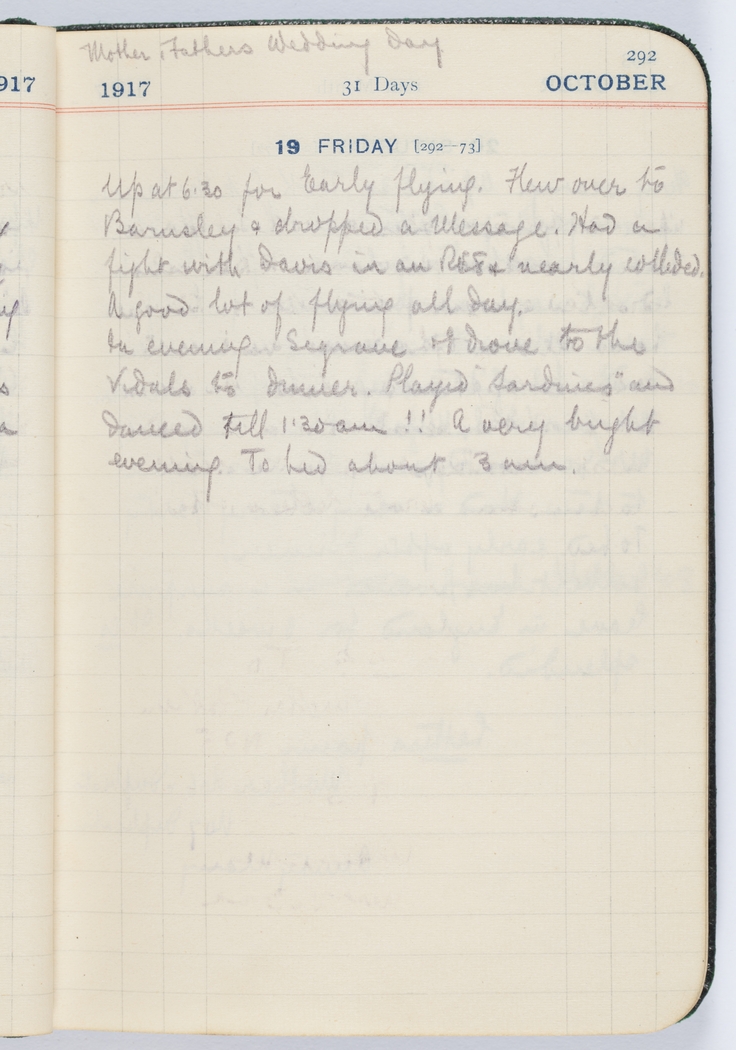 Mother, Fathers Wedding Day
292
917
1917 31 Days OCTOBER
19 FRIDAY [292—73]
Up at 6·30 for Early flying. Flew over to
Barnsley & dropped a Message. Had a
fight with Davis in an RE8 & nearly collided.
A good lot of flying all day.
In evening Segrave & I drove to the
Vidals to dinner. Played "Sardines" and
danced till 1·30 am !! A very bright
evening. To bed about 3 am.